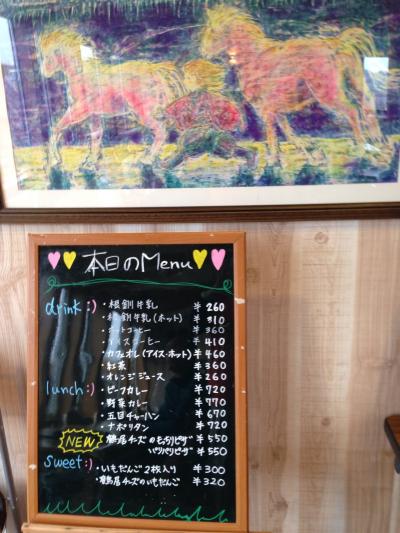 本日のMenu
drink:)
・根釧牛乳 ¥260
・根釧牛乳(ホット) ¥310
・ホットコーヒー ¥360
・アイスコーヒー ¥410
・カフェオレ(アイス・ホット) ¥460
・紅茶 ¥360
・オレンジジュース ¥260
lunch:)
・ビーフカレー ¥720
・野菜カレー ¥770
・五目チャーハン ¥670
・ナポリタン ¥720
NEW
鶴居チーズのもっちりピザ ¥550
パリパリピザ ¥550
sweet:)
・いもだんご2枚入り ¥300
・鶴居チーズのいもだんご ¥320